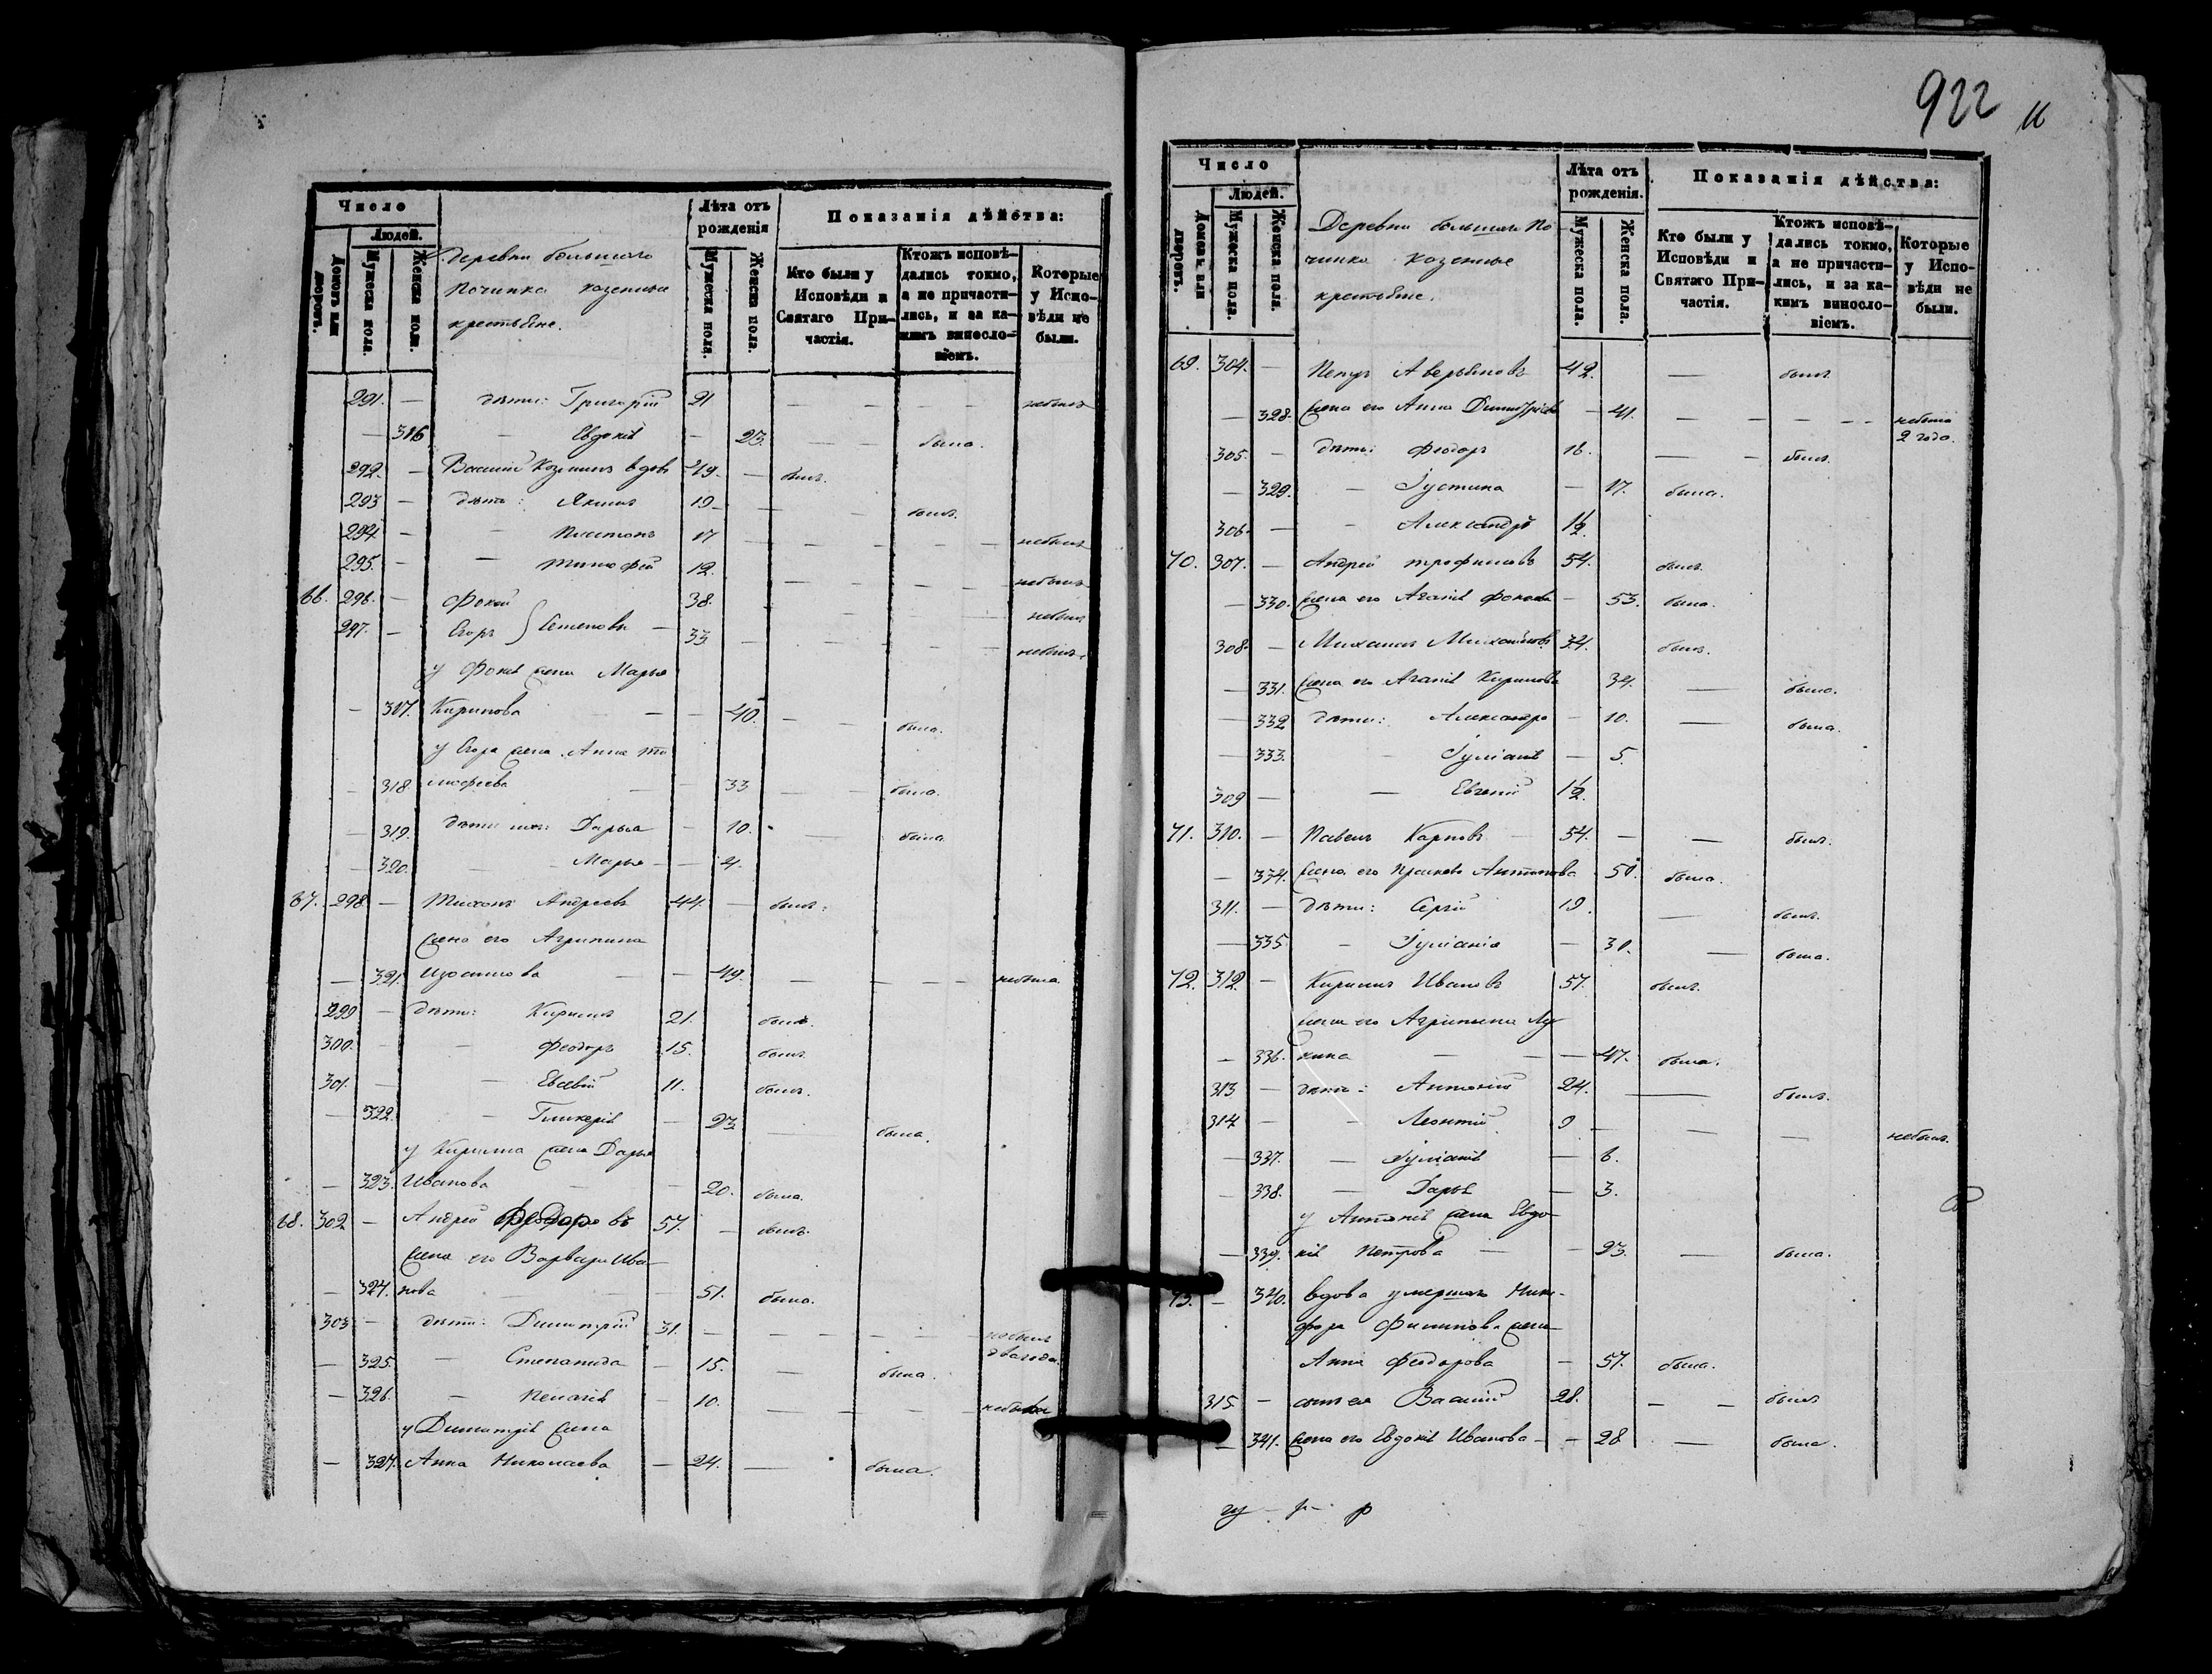 Число
Людей.
Домовъ или дворовъ.
Мужеска пола.
Женска пола.
Деревни большаго
Починка казенные
крестьяне.
Лѣта отъ рожденія
Мужеска пола.
Женска пола.
Показанія дѣйства:
Кто были у Исповѣди и Святаго Причастія.
Ктожъ исповѣдались токмо, а не причастились, и за какимъ винословіемъ.
Которые у Исповѣди не были.
291. — дѣти: Григорій 21 — — — — небылъ
— 316 — Евдокія — 23. — — была.
292. — Василій Козминъ вдов 49. — былъ.
293 — дѣти: Якимъ 19 — — былъ.
294. — — Платонъ 17 — — — — небылъ
295. — — Тимофей 12. — — — — небылъ
66. 296. — Фокій 38. — — — небылъ
297. — Егоръ } Семеновы — 33 — — — — небылъ.
у Фокія жена Марья
— 317. Кирилова — — 40. — — была.
у Егора жена Анна Ти
— 318 мофеева — — 33 — — была.
— 319. дѣти ихъ: Дарья — 10. — была
— 320. — Марья — — 4.
67. 298. — Тихонъ Андреевъ 44. — былъ.
жена его Агрипина
— 321. Изосимова — — 49. — — — небыла
299 — дѣти: Кирилъ 21. былъ.
300. — — Феодоръ 15. былъ.
301. — — Евсевій 11. былъ.
— 322. — Гликерія — 23 — была.
у Кирила жена Дарья
— 323. Иванова — — 20. была.
68. 302 — Андрей Феодоровъ 57. — былъ.
жена его Варвара Ива—
— 324. нова — — — 51. была.
303 — дѣти: Димитрій 31. — — — — небылъ
два года.
— 325. — Степанида — 15. — была.
— 326. — Пелагія — 10. — — — небыла
у Димитрія жена
— 327. Анна Николаева — 24. — была.
922
Число
Людей.
Домовъ или дворовъ.
Мужеска пола.
Женска пола.
Деревни большаго По
чинка казенные
крестьяне.
Лѣта отъ рожденія.
Мужеска пола.
Женска пола.
Показанія дѣйства:
Кто были у Исповѣди и Святаго Причастія.
Ктожъ исповѣдались токмо, а не причастились, и за какимъ винословіемъ.
Которые у Исповѣди не были.
69. 304. — Петръ Аверьяновъ 42. — былъ.
— 328. жена его Анна Димитріева — 41. — — — — небыла
2 года.
305. — дѣти: Феодоръ 16. — — былъ.
— 329. — Іустина — 17. была.
306. — — Александръ 1/2
70. 307. — Андрей Трофимовъ 54. былъ.
— 330. жена его Агапія Фокеева — 53. была.
308. — Михаилъ Михайловъ 34. былъ.
— 331. жена его Агапія Кирилова 34. — была.
— 332 дѣти: Александра — 10. — была.
— 333. — Іуліанія — 5.
309 — — Евгеній 1/2.
71. 310. — Павелъ Карповъ — 54. — — былъ.
— 334. жена его Прасковья Антипова 50. была.
311. — дѣти: Сергій 19. — былъ.
— 335. — Іуліанія — 30. — была.
72. 312. — Кирилъ Ивановъ 57. былъ.
жена его Агрипина Лу
— 336. кина — — — 47. была.
313 — дѣти: Антоній 24. — былъ.
314 — — Леонтій 9 — — — небылъ.
— 337. — Іуліанія — 6.
— 338. — Дарья — 3.
у Антонія жена Евдо—
— 339. кія Петрова — — 23. — была.
73. — 340. вдова умершаго Ники-
фора Филипова жена
Анна Феодорова — 57. была.
315. — сынъ ея Василій 28. — — былъ
— 341. жена его Евдокія Иванова — — 28 — была.